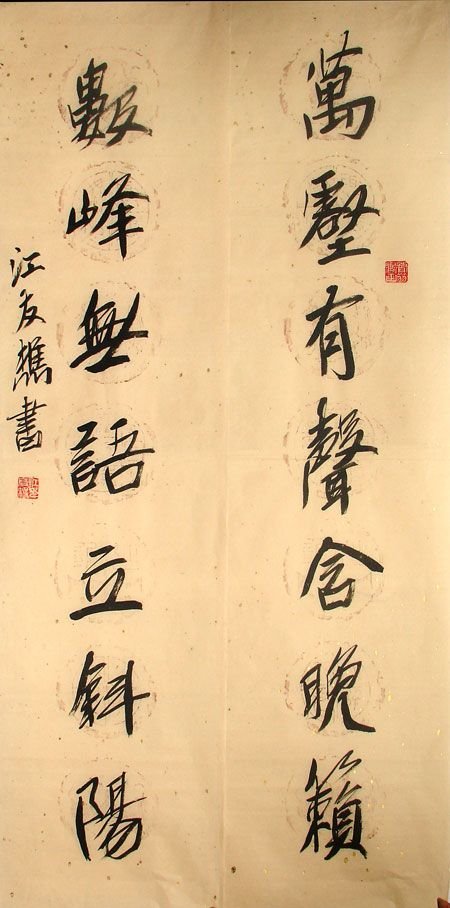 萬壑有聲含晚籟
數峰無語立斜陽
江友樵書